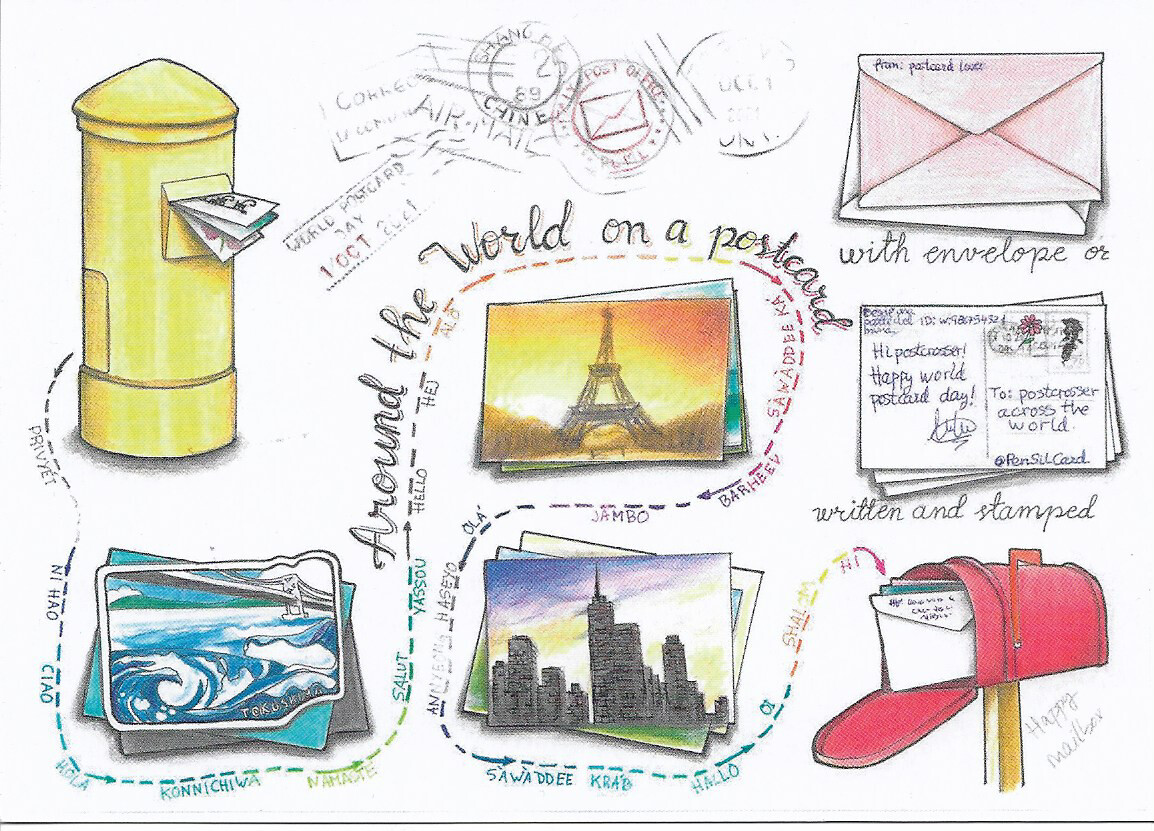 AIR-MAIL
SHANG
2
89
CHINE
POST OFFICE
OCT 1
WORLD POSTCARD
DAY
1 OCT
Around the World on a postcard
From: postcard lover
with envelope or
ID:
Hi postcrosser!
Happy world
postcard day!
To: postcrosser
across the
world.
@PenSilCard
written and stamped
PRIVYET
NI HAO
CIAO
HOLA
KONNICHIWA
NAMASTE
SALUT
YASSOU
HELLO
HEJ
ALO
SAWADDEE KA
BARHEEV
JAMBO
OLA'
ANNYEONG HASEYO
SAWADDEE KRAB
HALLO
OI
SHALOM
HI
TOKUSHIMA
Happy
mailbox